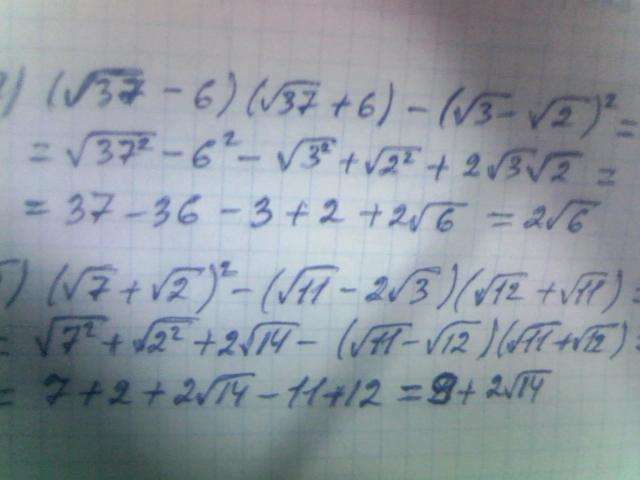 а) (√37 - 6)(√37 + 6) - (√3 - √2)² =
= √37² - 6² - √3² + √2² + 2√3√2 =
= 37 - 36 - 3 + 2 + 2√6 = 2√6
б) (√7 + √2)² - (√11 - 2√3)(√12 + √11) =
= √7² + √2² + 2√14 - (√11 - √12)(√11 + √12) =
= 7 + 2 + 2√14 - 11 + 12 = + 2√14